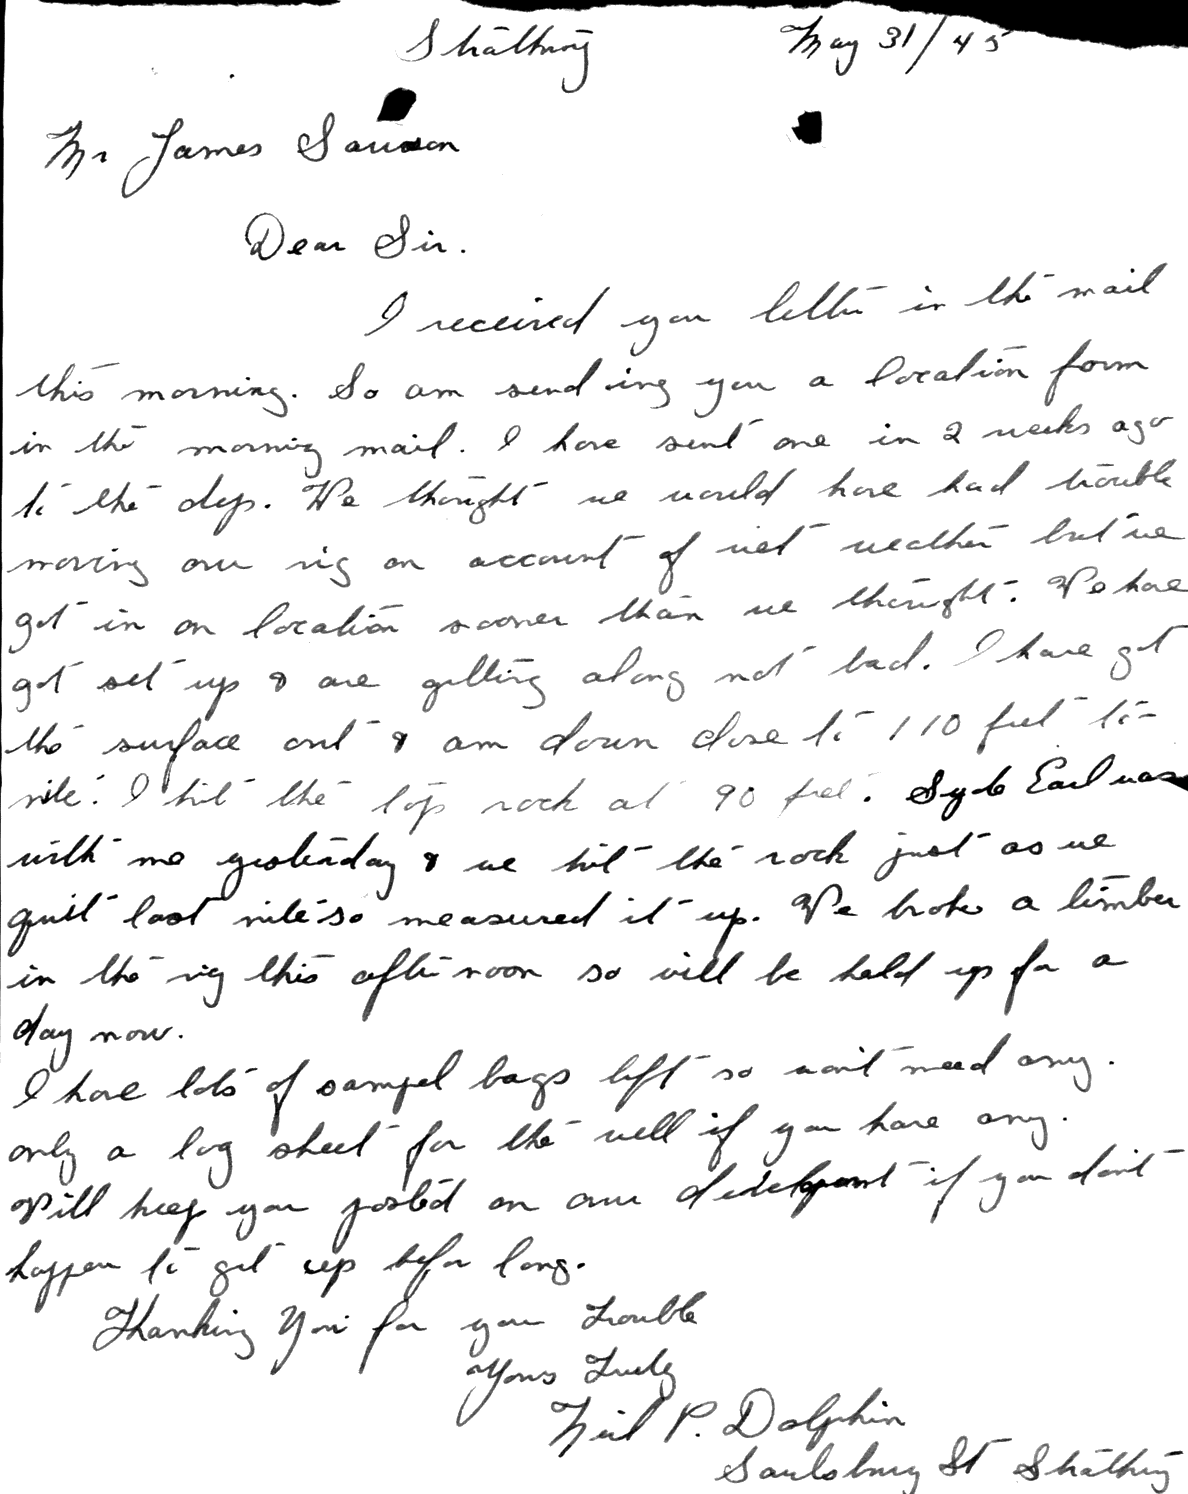 Strathroy May 31/45
Mr James Sanson
Dear Sir.
I received your letter in the mail
this morning. So am sending you a location form
in the morning mail. I have sent one in 2 weeks ago
to the dep. We thought we would have had trouble
moving our rig on account of wet weather but we
got in on location sooner than we thought. We have
got set up & are getting along not bad. I have got
the surface out & am down close to 110 feet to-
nite. I hit the top rock at 90 feet. Earl was
with me yesterday & we hit the rock just as we
quit last nite so measured it up. We broke a timber
in the rig this afternoon so will be held up for a
day now.
I have lots of sampel bags left so won't need any.
only a log sheet for the well if you have any.
Will keep you posted on our if you don't
happen to get up befor long.
Thanking You for your trouble
Yours Truly
Neil P. Dolphin
Saulsbury St Strathroy